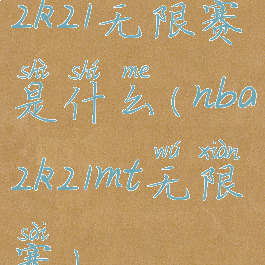 2k21无限赛
shì shí me
是什么(nba
wú xiàn
2k21mt无限
sài
赛)